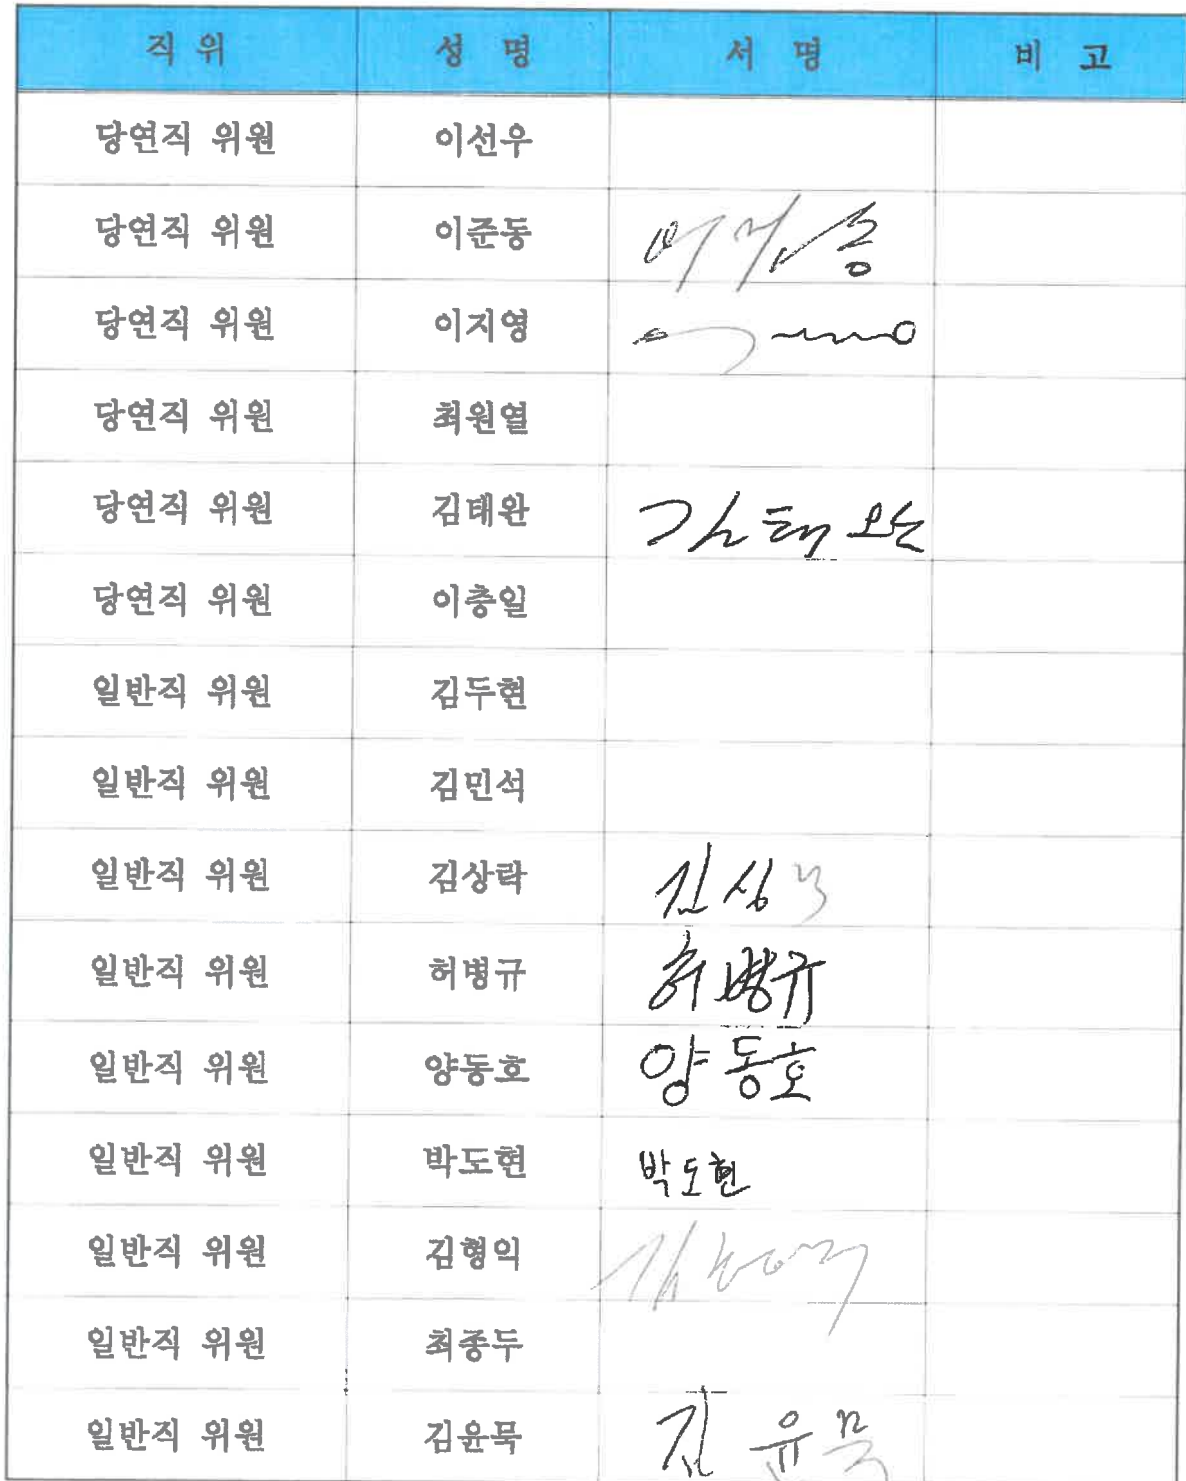 직위 성 명 서 명 비 고
당연직 위원 이선우
당연직 위원 이준동
당연직 위원 이지영
당연직 위원 최원열
당연직 위원 김태완 김태완
당연직 위원 이충일
일반직 위원 김두현
일반직 위원 김민석
일반직 위원 김상락 김상
일반직 위원 허병규 허병규
일반직 위원 양동호 양동호
일반직 위원 박도현 박도현
일반직 위원 김형익
일반직 위원 최종두
일반직 위원 김윤묵 김윤묵